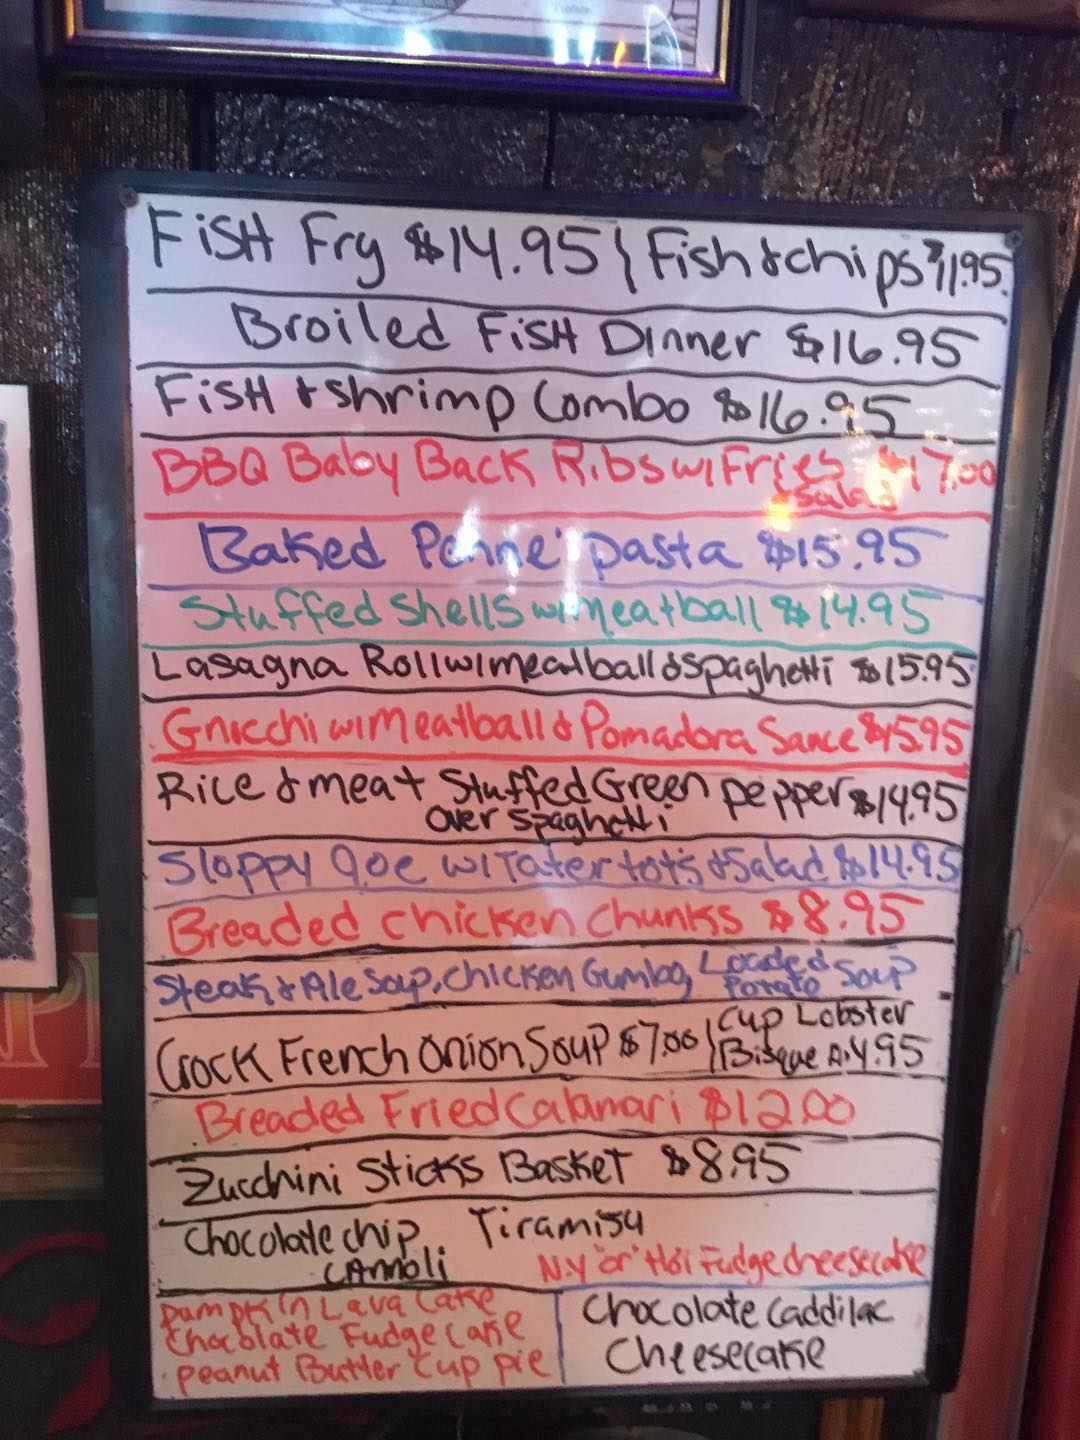 FisH Fry $14.95 | Fish & chips $11.95
Broiled FisH Dinner $16.95
FisH & shrimp Combo $16.95
BBQ Baby Back Ribs w/ Fries $17.00
& Salad
Baked Penne' pasta $15.95
Stuffed Shells w/ meatball $14.95
Lasagna Roll w/ meatball & spaghetti $15.95
Gnicchi w/ Meatball & Pomadora Sauce $15.95
Rice & meat Stuffed Green pepper $14.95
over spaghetti
Sloppy Joe w/ Tater tots & Salad $14.95
Breaded chicken chunks $8.95
Steak & Ale Soup, Chicken Gumbo, Loaded Potato Soup
Crock French Onion Soup $7.00 | Cup Lobster
Bisque 4.95
Breaded Fried Calamari $12.00
Zucchini Sticks Basket $8.95
Chocolate chip Tiramisu
Cannoli N.Y "or" Hot Fudge cheesecake
Pumpkin Lava Cake
Chocolate Fudge Cake
Peanut Butter Cup pie
Chocolate Caddilac
Cheesecake